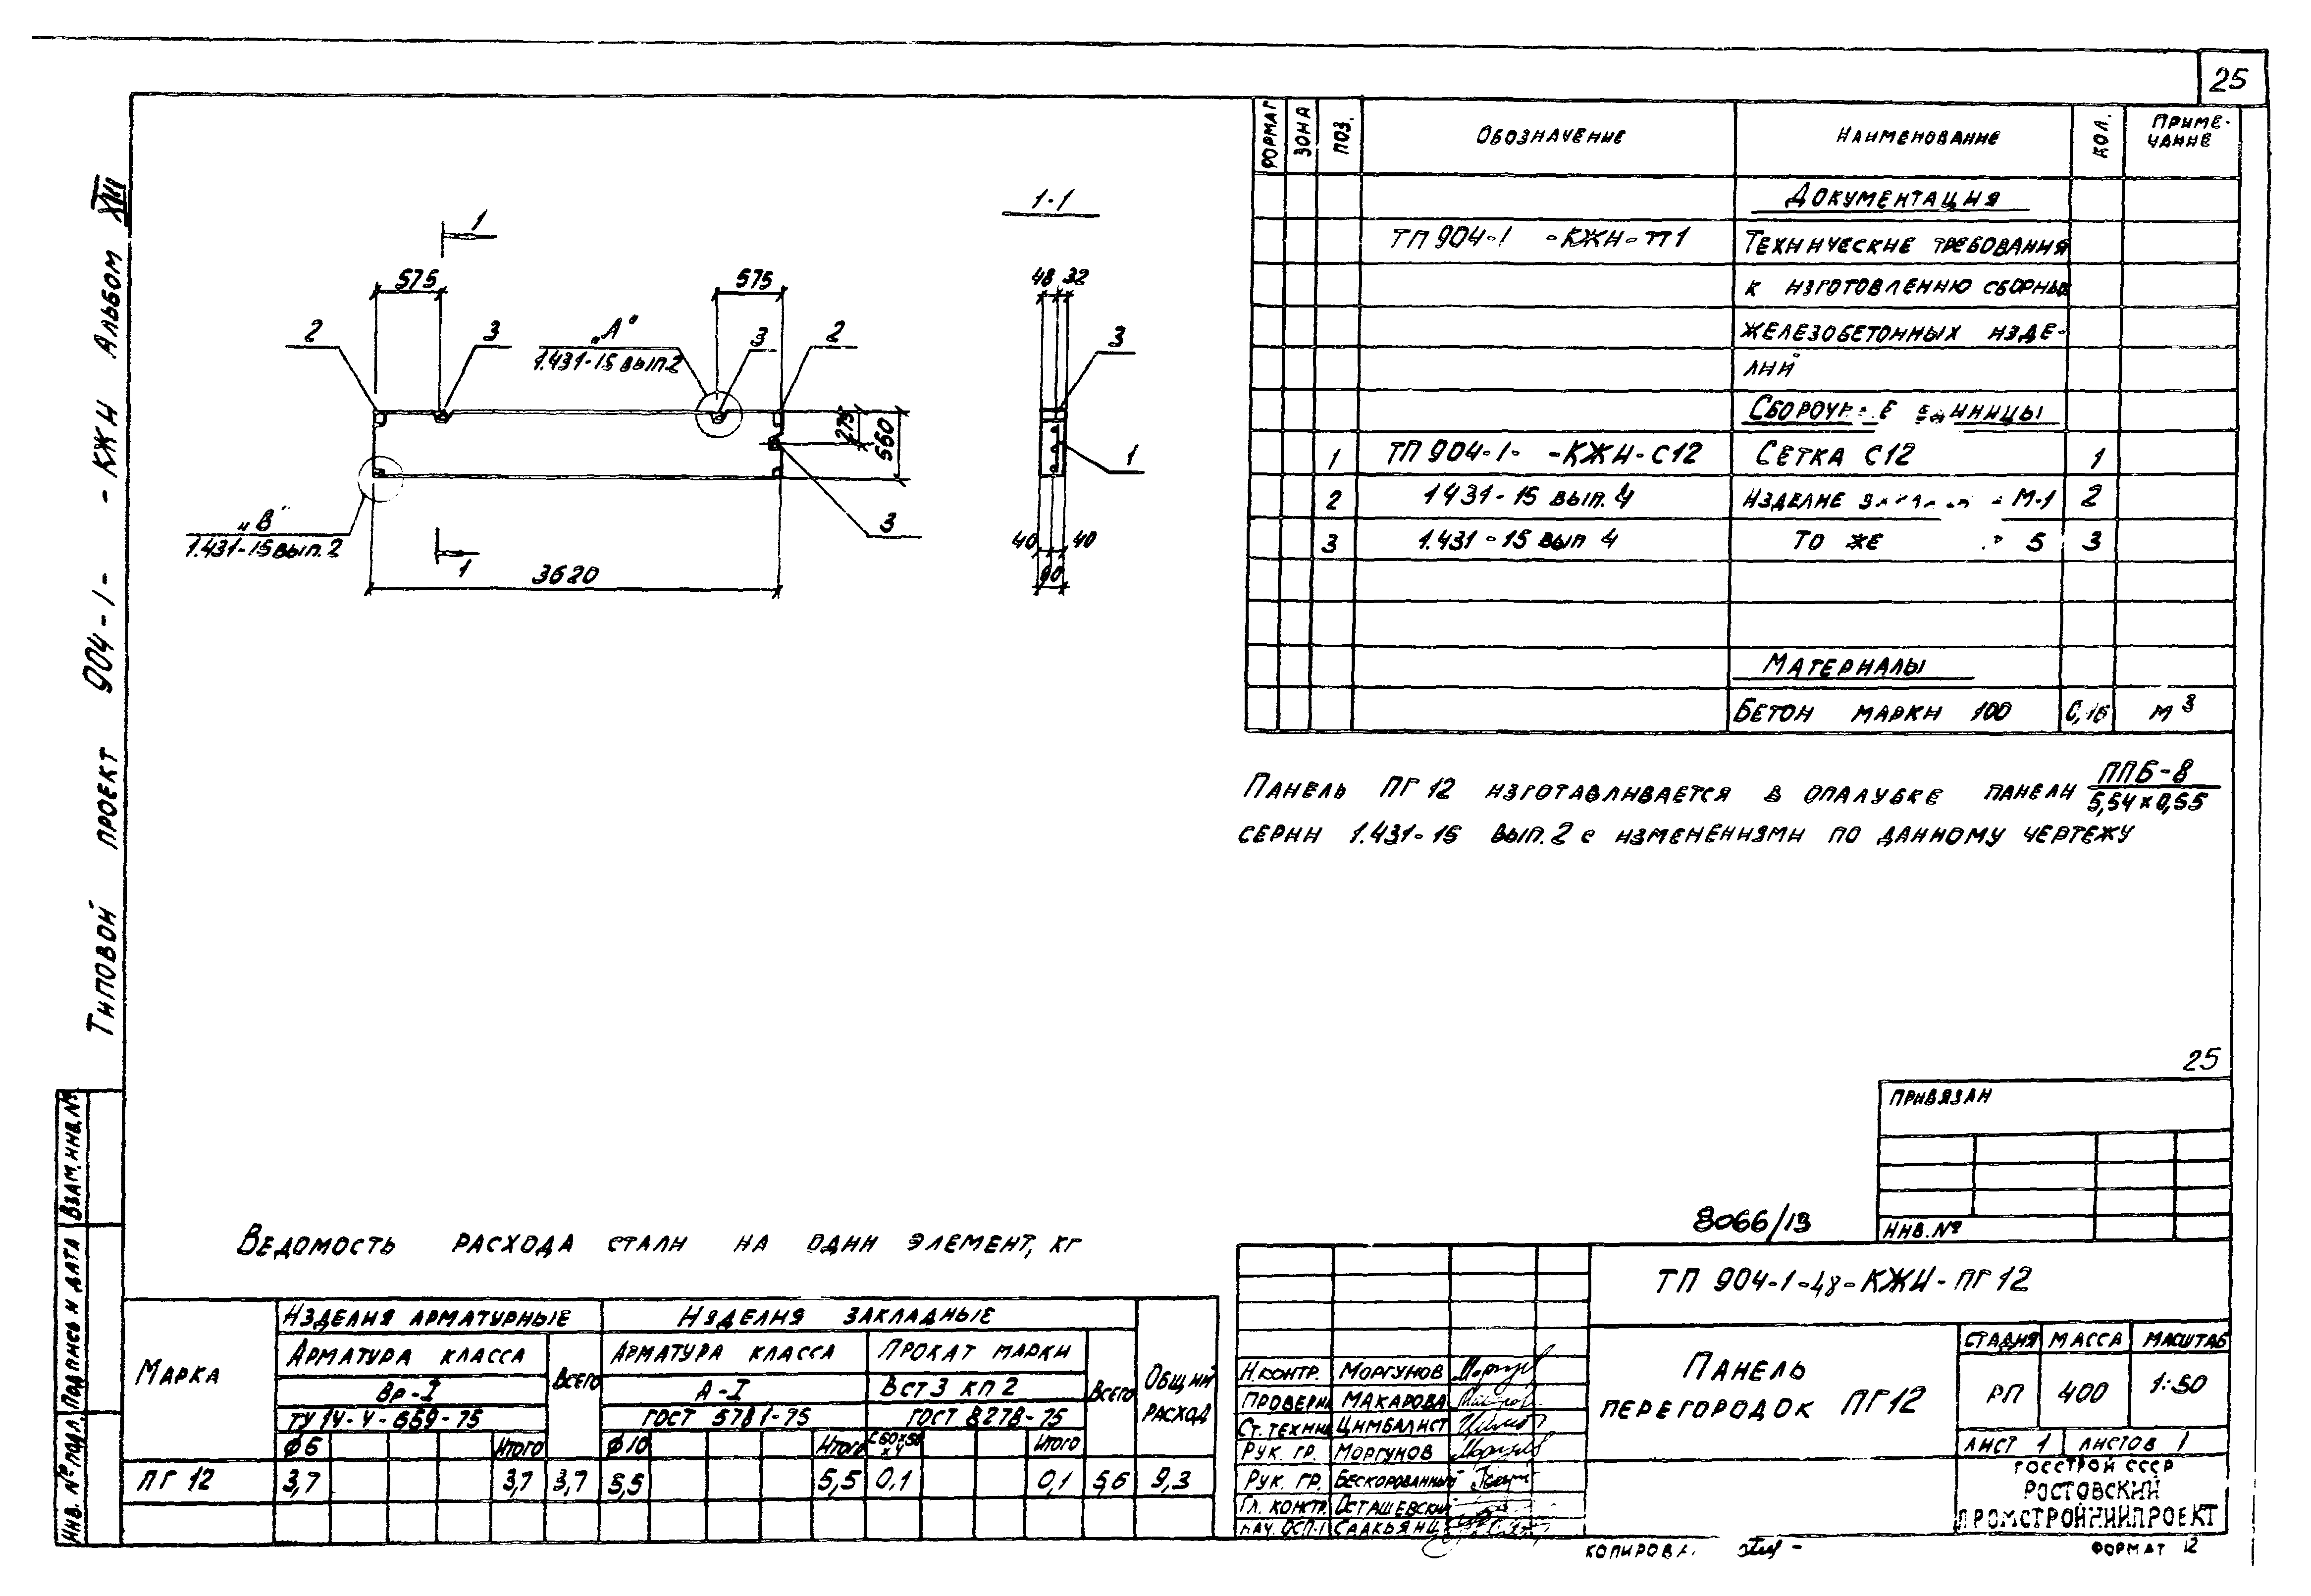 25
Типовой проект 904-1- -КЖИ Альбом XIII
1
575
575
2
3
„А"
1.431-15 вып.2
3
2
275
560
3
„В"
1.431-15 вып.2
1
3620
1-1
48 32
3
1
40 40
80
Формат Зона Поз. Обозначение Наименование Кол. Приме-
чание
Документация
ТП 904-1 -КЖИ-ТТ1 Технические требования
к изготовлению сборных
железобетонных изде-
лий
Сборочные единицы
1 ТП 904-1- -КЖИ-С12 Сетка С12 1
2 1431-15 вып. 4 Изделие М-1 2
3 1.431-15 вып 4 То же 5 3
Материалы
Бетон марки 100 0,16 м³
Панель ПГ 12 изготавливается в опалубке панели ППБ-8
5,54×0,55
серии 1.431-15 вып. 2 с изменениями по данному чертежу
25
Привязан
Инв. №
8066/13
Ведомость расхода стали на один элемент, кг
Марка
Изделия арматурные
Изделия закладные
Общий
расход
Арматура класса
Вр-I
ТУ 14-4-659-75
Всего
Арматура класса
А-I
ГОСТ 5781-75
Прокат марки
Вст3 кп2
ГОСТ 8278-75
Всего
ф5 Итого ф10 Итого Итого
ПГ 12 3,7 3,7 3,7 5,5 5,5 0,1 0,1 5,6 9,3
ТП 904-1-48-КЖИ-ПГ12
Н.контр. Моргунов
Проверил Макарова
Ст. техник Цимбалист
Рук. гр. Моргунов
Рук. гр. Бескорованный
Гл. констр. Осташевский
Нач. ОСП-1
Панель
перегородок ПГ12
Стадия Масса Масштаб
РП 400 1:50
Лист 1 Листов 1
Госстрой СССР
Ростовский
Промстройниипроект
Копировал
Формат 12
Взам. инв. №
Подпись и дата
Инв. № подл.